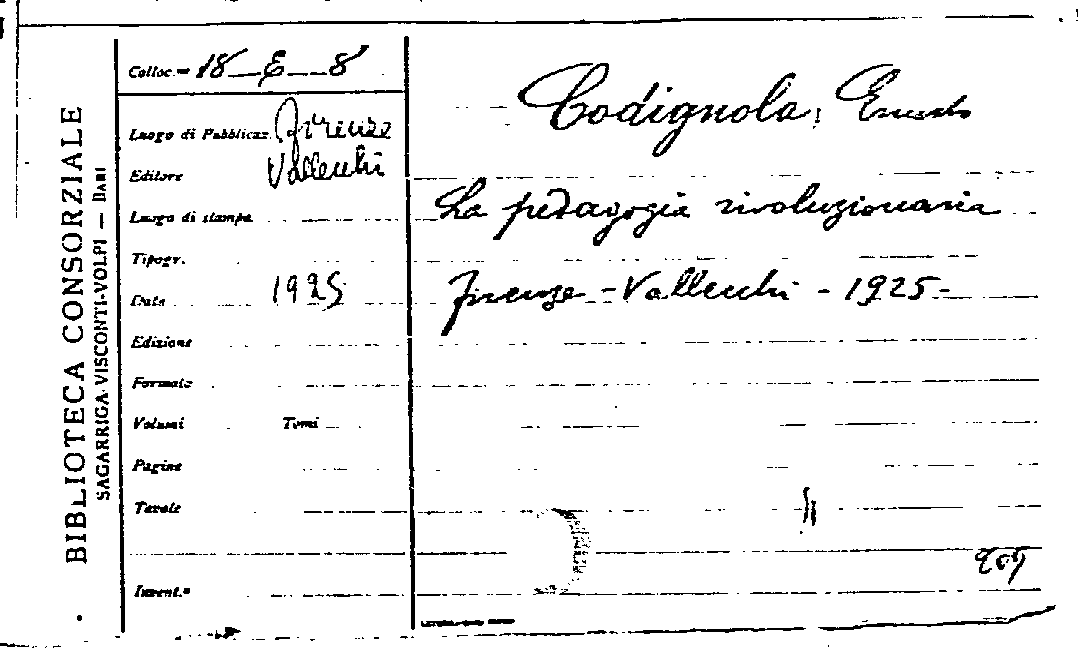 BIBLIOTECA CONSORZIALE
SAGARRIGA-VISCONTI-VOLPI — BARI
Colloc.ne 18-E-8
Luogo di Pubblicaz. Firenze
Editore Vallecchi
Luogo di stampa
Tipogr.
Data 1925
Edizione
Formato
Volumi Tomi
Pagine
Tavole
Invent.o
Codignola, Ernesto
La pedagogia rivoluzionaria
Firenze - Vallecchi - 1925-